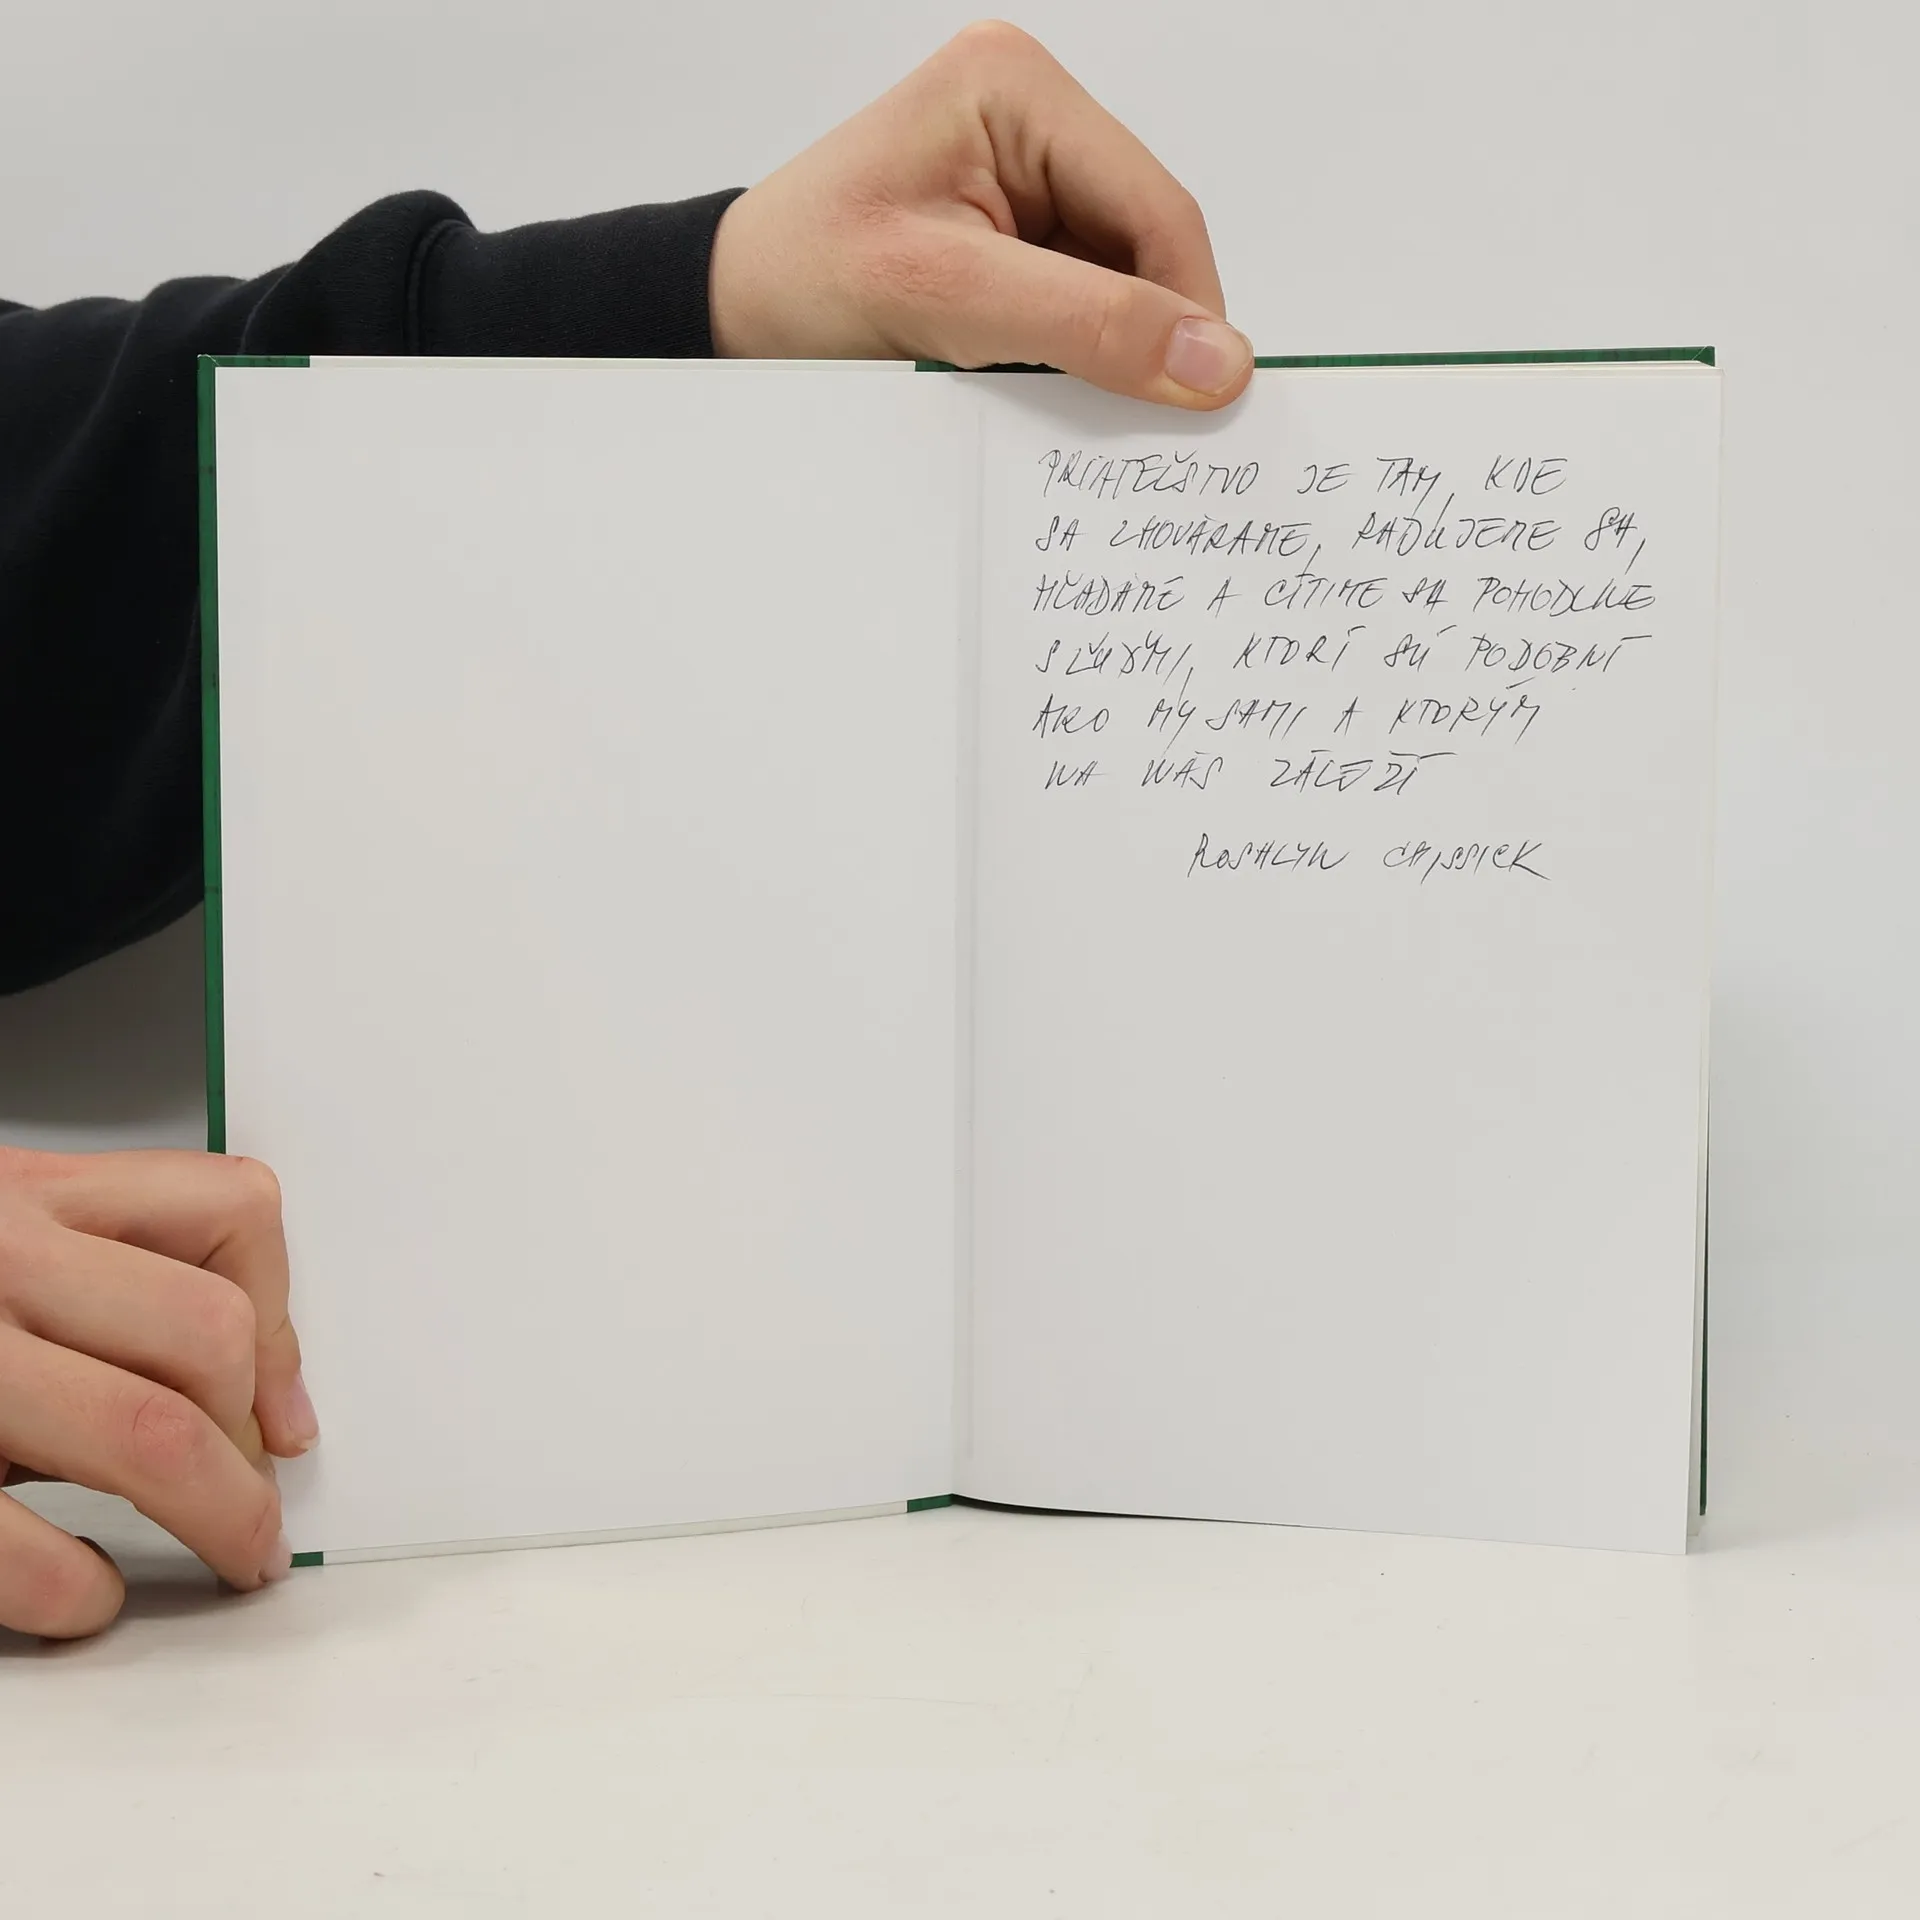 PRIATEĽSTVO JE TAM, KDE
SA ZHOVÁRAME, RADUJEME SA,
HĽADÁME A CÍTIME SA POHODLNE
S ĽUĎMI, KTORÍ SÚ PODOBNÍ
AKO MY SAMI A KTORÝM
NA NÁS ZÁLEŽÍ
ROSALYN CHISSICK